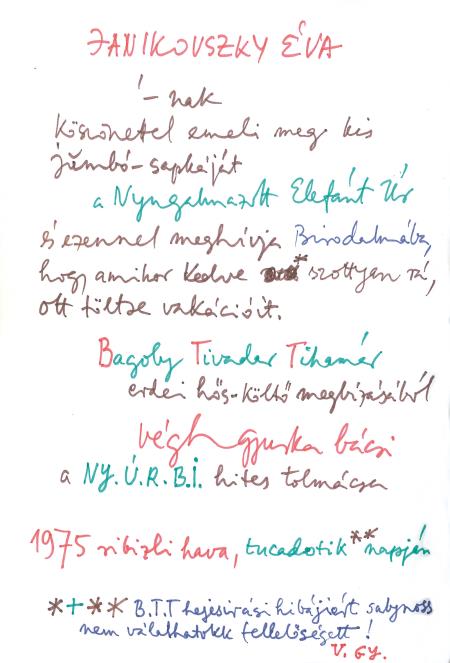 JANIKOVSZKY ÉVA
´- nak
köszönettel emeli meg kis
jumbó-sapkáját
a Nyugalmazott Elefánt Úr
és ezennel meghívja Birodalmába,
hogy amikor kedve szottyan rá,
ott töltse vakációit.
Bagoly Tivadar Tihamér
erdei hős-költő megbízásából
végh gyuszka bácsi
a NY.Ú.R.B.I. hites tolmácsa
1975 ribizli hava, tucadotik** napján
*+** B.T.T hejesirási hibájiért sajnoss
nem válalhatokk fellelőségett!
V. GY.